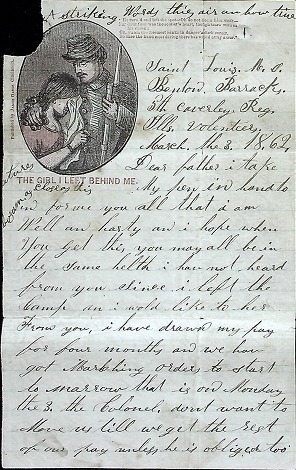 striking Words this air an how true
Saint Louis. M. O.
Benton. Barracks.
5th Coverley. Reg.
Ills. Volunteers.
March. the 3. 1862
THE GIRL I LEFT BEHIND ME.
Dear father i take
My pen in hand to
in for me you all that i am
Well an harty an i hope when
You get this you may all be in
the same helth i hav not heard
from you since i left the
Camp an i wold like to her
From you, i have drawn my pay
for four months an we hav
got Marching orders to start
to marrow that is on Monday
the 3. the Colonel. dont want to
Move us till we get the rest
of our pay unless he is obliged too